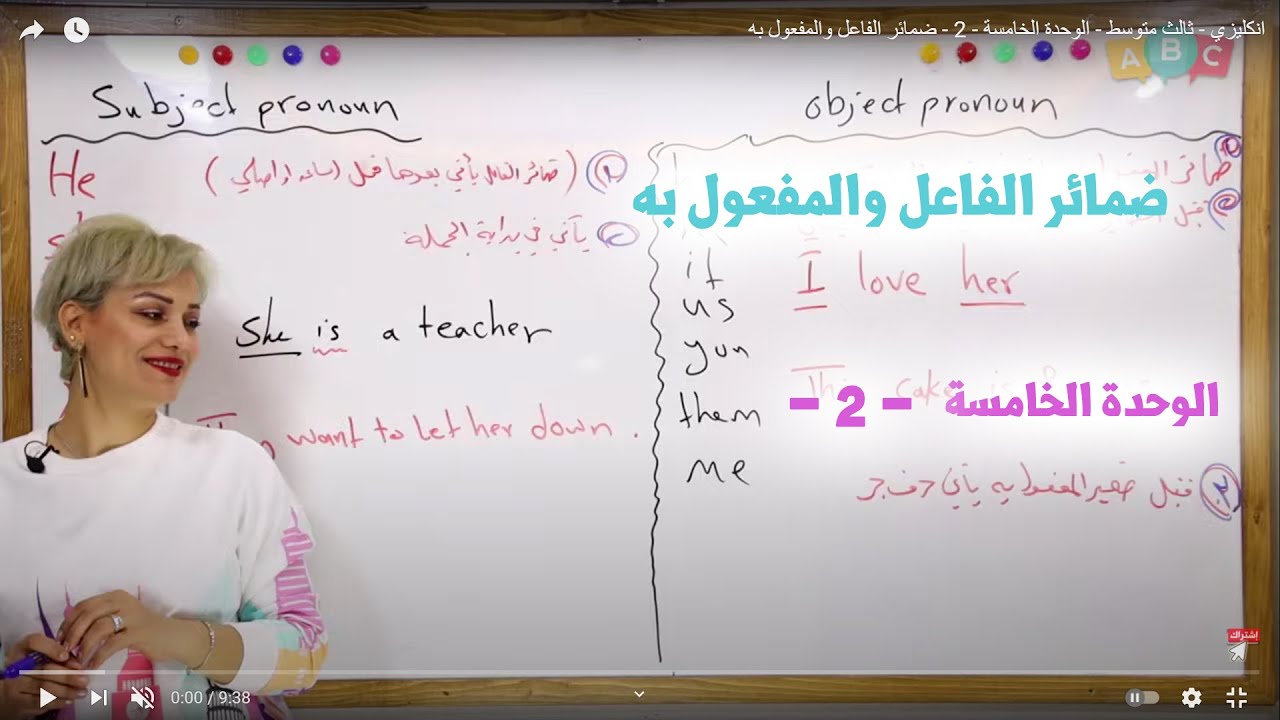 انكليزي - ثالث متوسط - الوحدة الخامسة - 2 - ضمائر الفاعل والمفعول به
A B C
Subject pronoun
He
١ ( ضمائر الفاعل يأتي بعدها فعل (مساعد او اصلي )
٢ يأتي في بداية الجملة
She is a teacher
want to let her down .
object pronoun
ضمائر
قبل
ضمائر الفاعل والمفعول به
it
us
you
them
me
I love her
This cake is
الوحدة الخامسة - 2 -
٣ قبل ضمير المفعول به يأتي حرف جر
إشتراك
0:00 / 9:38